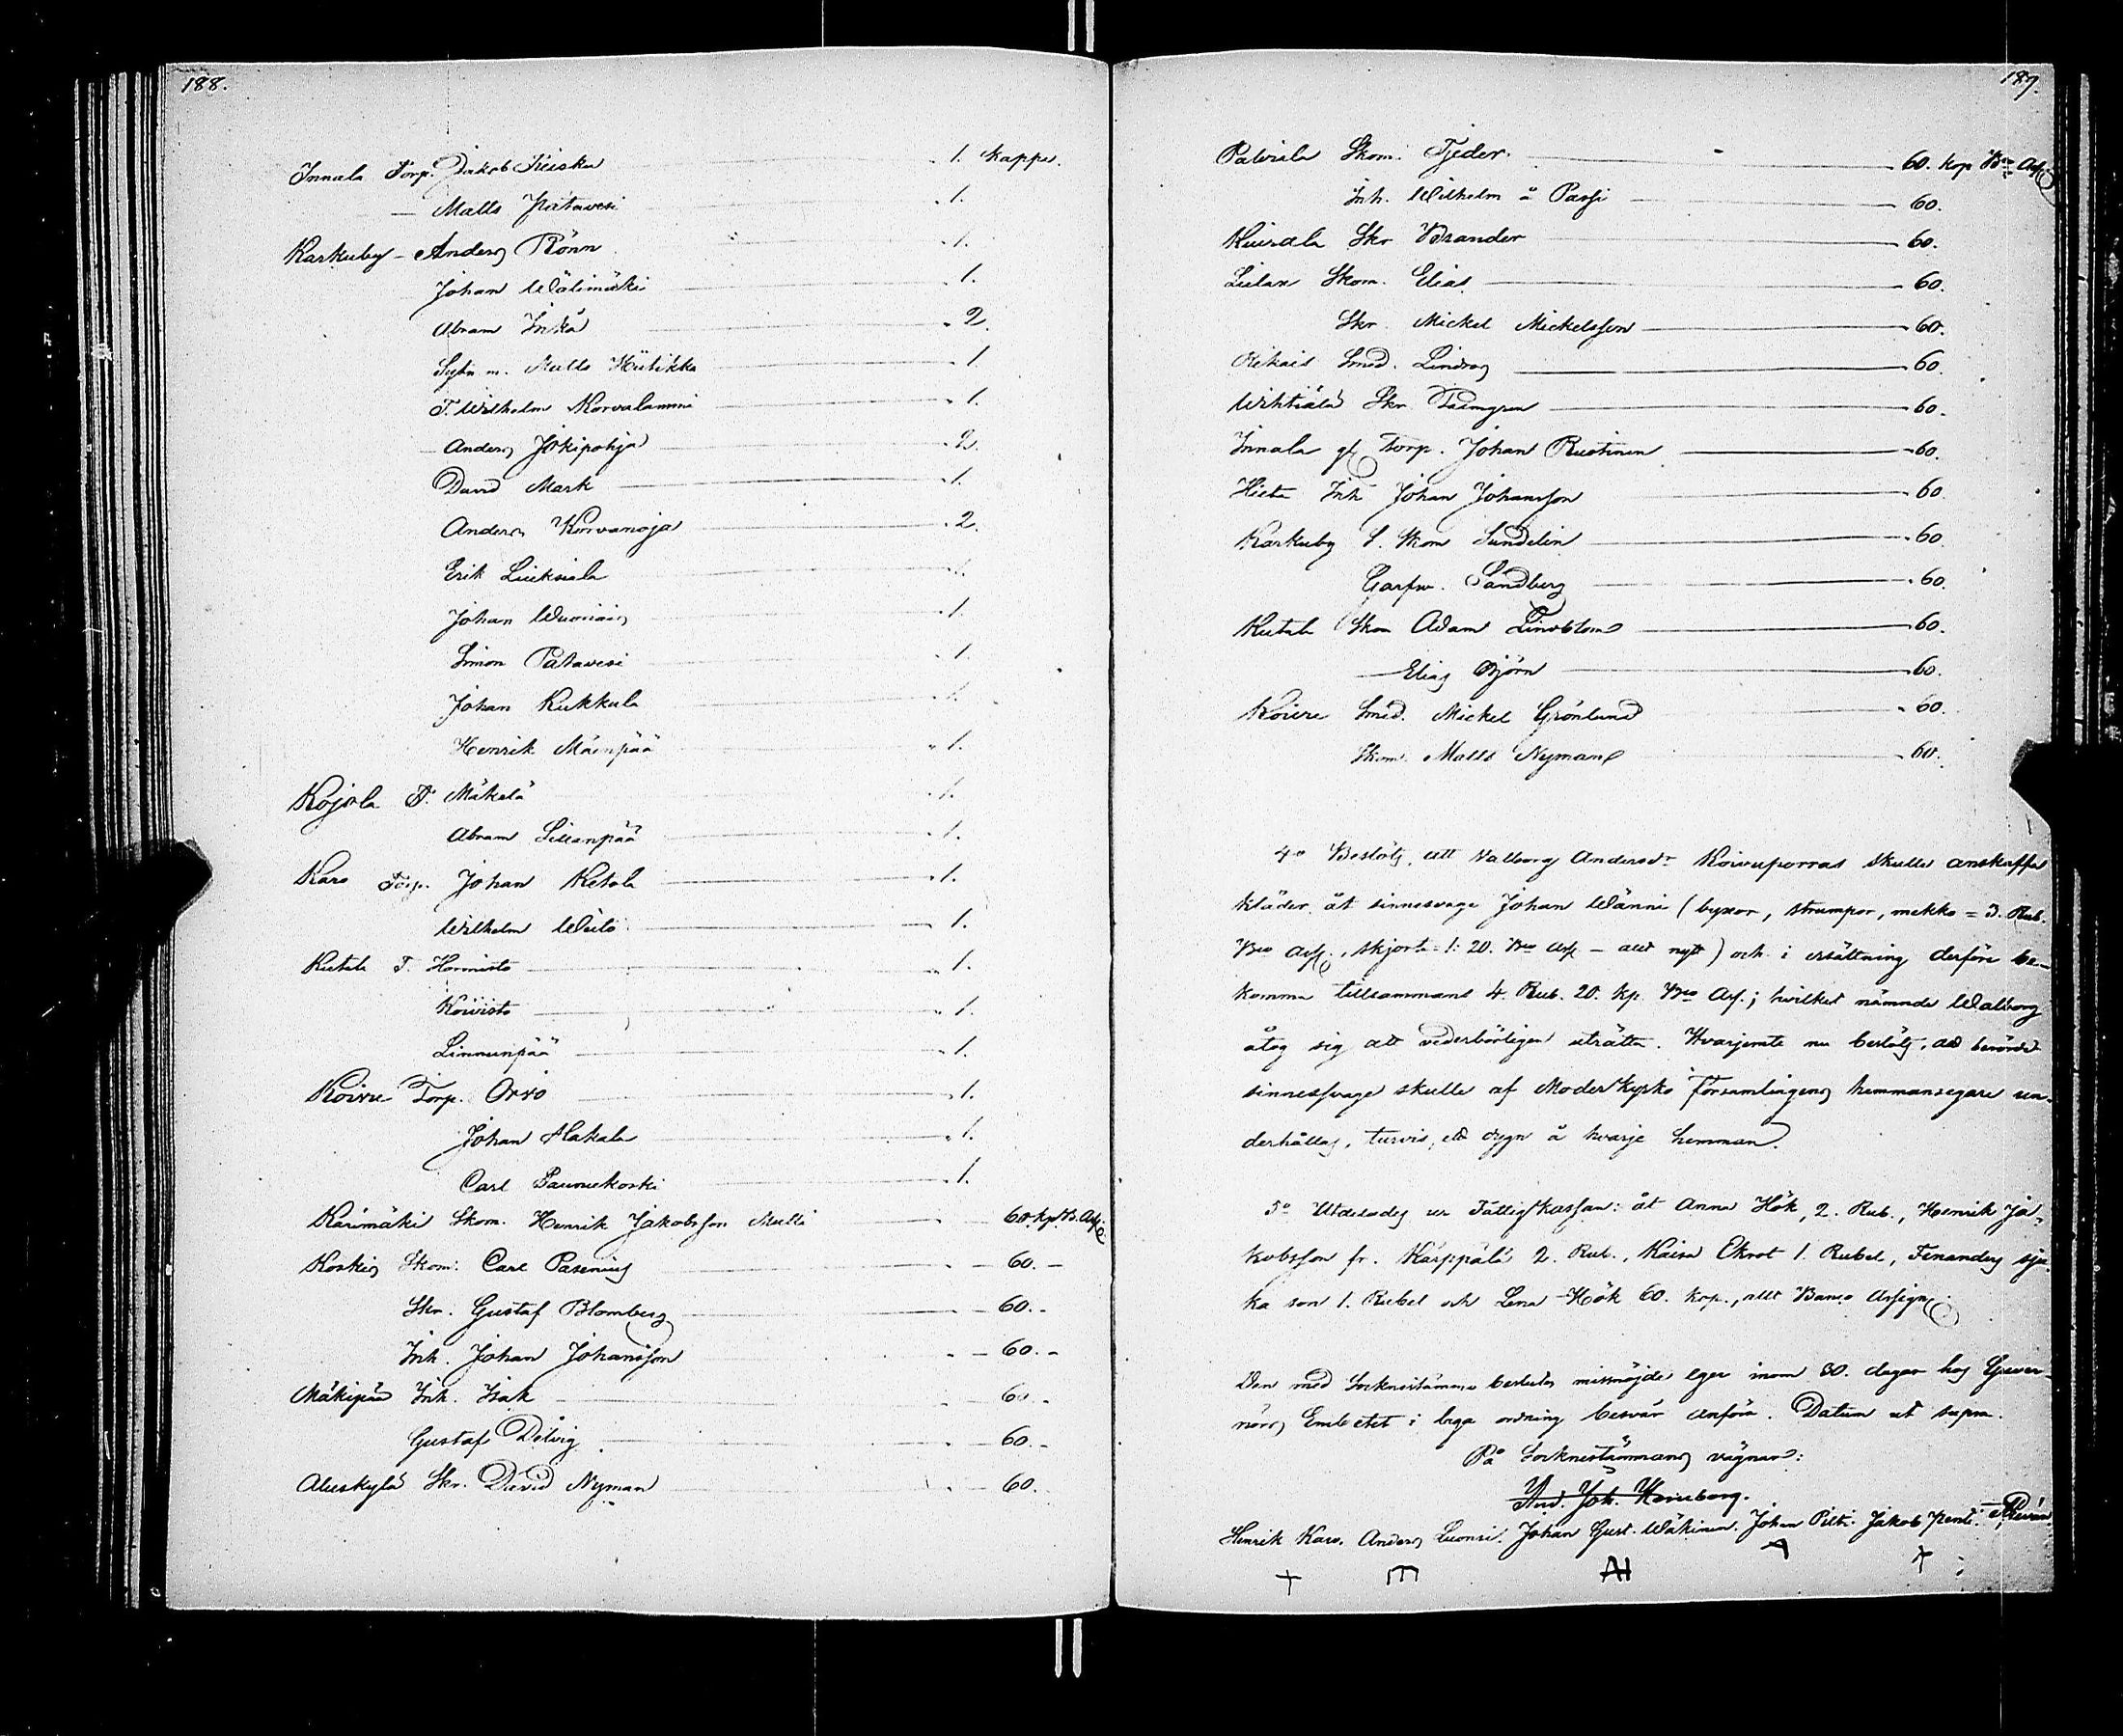 188.
Innala Torp. Jakob Kiiska 1. Kappe.
— Matts Patavesi 1.
Karkuby - Anders Rönn 1.
Johan Wälimäki 1.
Abram Inkä 2.
Sytn m. Matts Hütikka 1.
T. Wilhelm Korvalammi 1.
Anders Jokipohja 2.
David Mark 1.
Anders Korvanoja 2.
Erik Liuksiala 1.
Johan Wuoriais 1.
Simon Patavesi 1.
Johan Kukkula 1.
Henrik Mäenpää 1.
Kojola T. Mäkelä 1.
Abram Sillanpää 1.
Karo Torp. Johan Ketola 1.
Wilhelm 1.
Kutala T. Hormisto 1.
Koivisto 1.
Linnunpää 1.
Koivu Torp. Orvo 1.
Johan Alakala 1.
Carl Paunukoski 1.
Karimäki Skom. Henrik Jakobsson Mulli 60. kp. B. Ass.
Koskis Skom: Carl Pasenius 60. -
Skr. Gustaf Blomberg 60. -
Inh. Johan Johansson 60. -
Mäkipää Inh. Isak 60. -
Gustaf 60. -
Aluskylä Skr. David Nyman 60.
187.
Skom. Tjeder. 60. kop Bco Ass
Inh. Wilhelm å Passi 60.
Kuirala Skr Brander 60.
Skom. Elias 60.
Skr. Mickel Mickelsson 60.
Smed. Lindros 60.
Skr 60.
Innala gl Torp. Johan Rustinen 60.
Hieta Inh Johan Johansson 60
Karkuby S. Skom Sundelin 60
Garfv. Sandberg 60.
Kutala Skom Adam Lindblom 60.
— Elias Björn 60.
Koivu Smed. Mickel Grönlund 60.
Skom. Matts Nyman 60.
4o Beslöts, att Valborg Andersdr Koivuporras skulle anskaffa
kläder åt sinnessvage Johan Wänni (byxor, strumpor, mekko = 3. Rub.
Bco Ass., skjorta = 1: 20. Bco Ass - allt nytt) och i ersättning derföre be-
komma tillsammans 4. Rub. 20. kp. Bco Ass.; hvilket nämnde Walborg
åtog sig att vederbörligen uträtta. Hvarjemte nu beslöts, att berörde
sinnessvage skulle af Moderkyrko Församlingens hemmansegare un-
derhållas, turvis, ett dygn å hvarje hemman.
5o Utdelades ur Fattigkassan: åt Anna Hök, 2. Rub., Henrik Ja-
kobsson fr. Karppala 2. Rub., Kaisa Ekrot 1. Rubel, Fenanders sju-
ka son 1. Rubel och Lena Hök 60. kop., allt Banco Assign.
Den med Socknestämmans beslutes missnöjde eger inom 30. dagar hos Guver-
nörs Embetet i laga ordning besvär anföra. Datum ut supra.
På Socknestämmans vägnar:
And. Joh. Heinberg.
Henrik Karo. Anders Luonsi. Johan Gust. Wäkinen. Johan Jakob